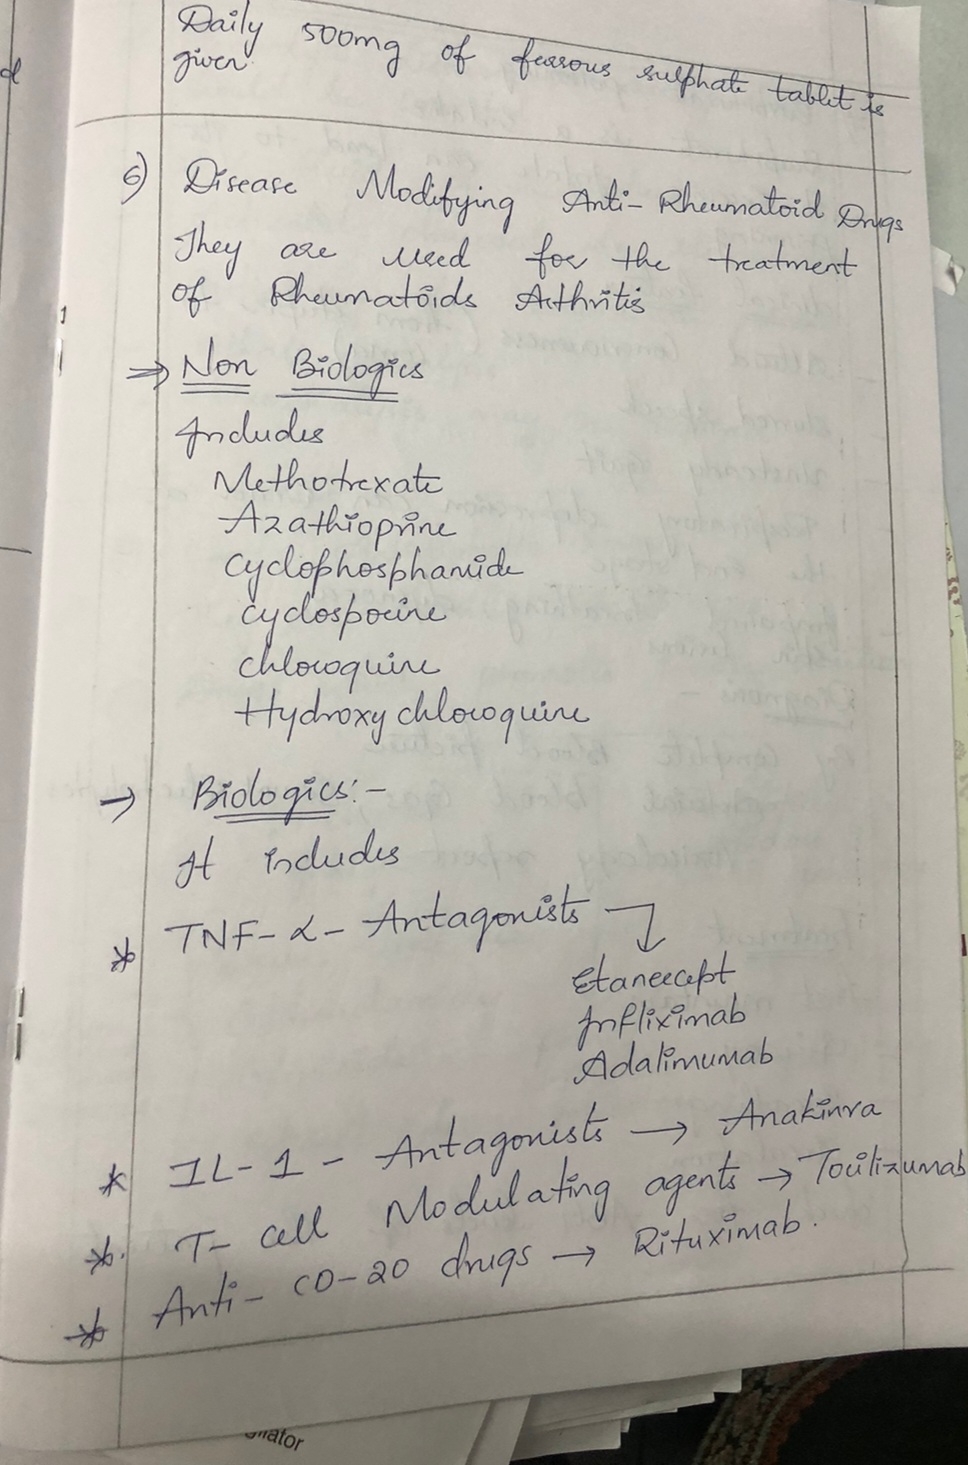 Daily 500mg of ferrous sulphate tablet is
given
6) Disease Modifying Anti-Rheumatoid Drugs
They are used for the treatment
of Rheumatoids Arthritis
⇒ Non Biologics
Includes
Methotrexate
Azathioprine
Cyclophosphamide
Cyclosporine
chloroquine
Hydroxy chloroquine
→ Biologics:-
It includes
* TNF-α- Antagonists
Etanercept
Infliximab
Adalimumab
* IL-1 - Antagonists → Anakinra
* T- cell Modulating agents → Tocilizumab
* Anti- CD-20 drugs → Rituximab.